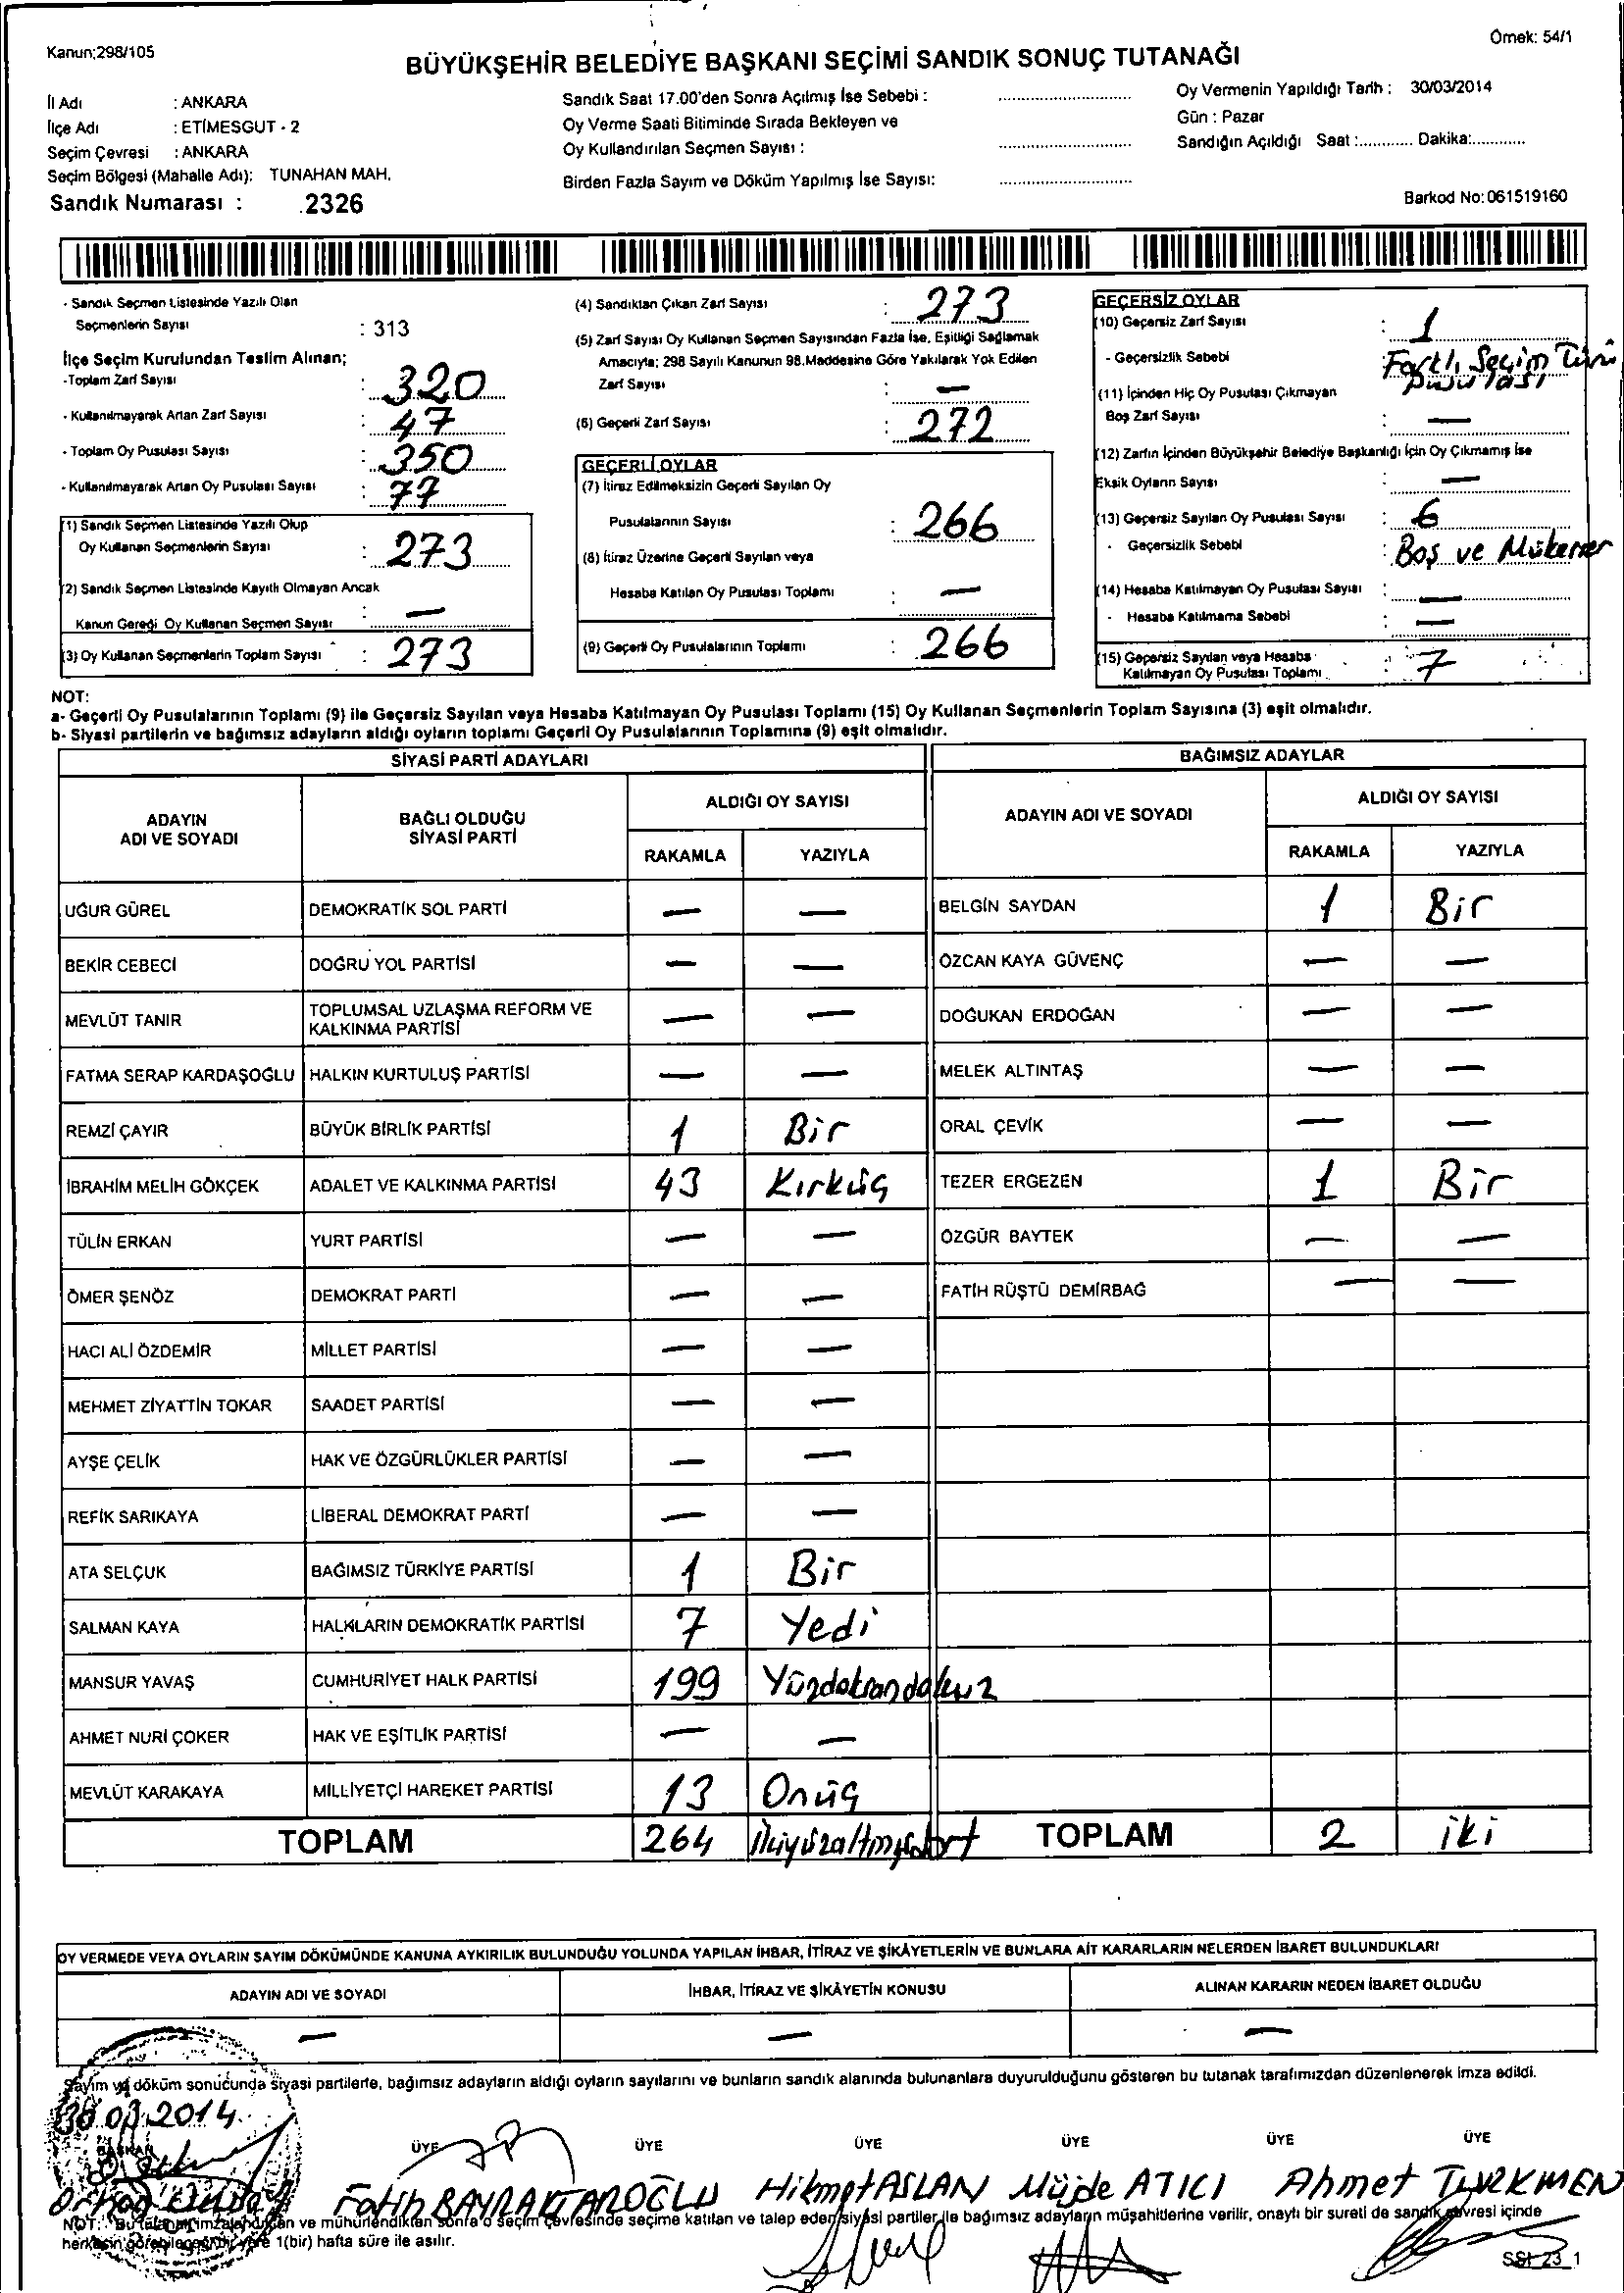 Kanun;298/105
Örnek: 54/1
BÜYÜKŞEHİR BELEDİYE BAŞKANI SEÇİMİ SANDIK SONUÇ TUTANAĞI
İl Adı : ANKARA
İlçe Adı : ETİMESGUT - 2
Seçim Çevresi : ANKARA
Seçim Bölgesi (Mahalle Adı): TUNAHAN MAH.
Sandık Numarası : 2326
Sandık Saat 17.00'den Sonra Açılmış İse Sebebi :
Oy Verme Saati Bitiminde Sırada Bekleyen ve
Oy Kullandırılan Seçmen Sayısı :
Birden Fazla Sayım ve Döküm Yapılmış İse Sayısı:
Oy Vermenin Yapıldığı Tarih : 30/03/2014
Gün : Pazar
Sandığın Açıldığı Saat :............ Dakika:............
Barkod No:061519160
- Sandık Seçmen Listesinde Yazılı Olan
Seçmenlerin Sayısı : 313
İlçe Seçim Kurulundan Teslim Alınan;
-Toplam Zarf Sayısı : 320
- Kullanılmayarak Artan Zarf Sayısı : 47
- Toplam Oy Pusulası Sayısı : 350
- Kullanılmayarak Artan Oy Pusulası Sayısı : 77
(1) Sandık Seçmen Listesinde Yazılı Olup
Oy Kullanan Seçmenlerin Sayısı : 273
(2) Sandık Seçmen Listesinde Kayıtlı Olmayan Ancak
Kanun Gereği Oy Kullanan Seçmen Sayısı : —
(3) Oy Kullanan Seçmenlerin Toplam Sayısı : 273
(4) Sandıktan Çıkan Zarf Sayısı : 273
(5) Zarf Sayısı Oy Kullanan Seçmen Sayısından Fazla İse, Eşitliği Sağlamak
Amacıyla; 298 Sayılı Kanunun 98.Maddesine Göre Yakılarak Yok Edilen
Zarf Sayısı : —
(6) Geçerli Zarf Sayısı : 272
GEÇERLİ OYLAR
(7) İtiraz Edilmeksizin Geçerli Sayılan Oy
Pusulalarının Sayısı : 266
(8) İtiraz Üzerine Geçerli Sayılan veya
Hesaba Katılan Oy Pusulası Toplamı : —
(9) Geçerli Oy Pusulalarının Toplamı : 266
GEÇERSİZ OYLAR
(10) Geçersiz Zarf Sayısı : 1
- Geçersizlik Sebebi : Farklı Seçim Türü
pusulası
(11) İçinden Hiç Oy Pusulası Çıkmayan
Boş Zarf Sayısı : —
(12) Zarfın İçinden Büyükşehir Belediye Başkanlığı İçin Oy Çıkmamış İse
Eksik Oyların Sayısı : —
(13) Geçersiz Sayılan Oy Pusulası Sayısı : 6
- Geçersizlik Sebebi : Boş ve Mükerrer
(14) Hesaba Katılmayan Oy Pusulası Sayısı : —
- Hesaba Katılmama Sebebi : —
(15) Geçersiz Sayılan veya Hesaba
Katılmayan Oy Pusulası Toplamı : 7
NOT:
a- Geçerli Oy Pusulalarının Toplamı (9) ile Geçersiz Sayılan veya Hesaba Katılmayan Oy Pusulası Toplamı (15) Oy Kullanan Seçmenlerin Toplam Sayısına (3) eşit olmalıdır.
b- Siyasi partilerin ve bağımsız adayların aldığı oyların toplamı Geçerli Oy Pusulalarının Toplamına (9) eşit olmalıdır.
SİYASİ PARTİ ADAYLARI
ADAYIN ADI VE SOYADI
BAĞLI OLDUĞU SİYASİ PARTİ
ALDIĞI OY SAYISI
RAKAMLA YAZIYLA
UĞUR GÜREL DEMOKRATİK SOL PARTİ — —
BEKİR CEBECİ DOĞRU YOL PARTİSİ — —
MEVLÜT TANIR TOPLUMSAL UZLAŞMA REFORM VE KALKINMA PARTİSİ — —
FATMA SERAP KARDAŞOĞLU HALKIN KURTULUŞ PARTİSİ — —
REMZİ ÇAYIR BÜYÜK BİRLİK PARTİSİ 1 Bir
İBRAHİM MELİH GÖKÇEK ADALET VE KALKINMA PARTİSİ 43 Kırküç
TÜLİN ERKAN YURT PARTİSİ — —
ÖMER ŞENÖZ DEMOKRAT PARTİ — —
HACI ALİ ÖZDEMİR MİLLET PARTİSİ — —
MEHMET ZİYATTİN TOKAR SAADET PARTİSİ — —
AYŞE ÇELİK HAK VE ÖZGÜRLÜKLER PARTİSİ — —
REFİK SARIKAYA LİBERAL DEMOKRAT PARTİ — —
ATA SELÇUK BAĞIMSIZ TÜRKİYE PARTİSİ 1 Bir
SALMAN KAYA HALKLARIN DEMOKRATİK PARTİSİ 7 Yedi
MANSUR YAVAŞ CUMHURİYET HALK PARTİSİ 199 Yüzdoksandokuz
AHMET NURİ ÇOKER HAK VE EŞİTLİK PARTİSİ — —
MEVLÜT KARAKAYA MİLLİYETÇİ HAREKET PARTİSİ 13 Onüç
TOPLAM 264 İkiyüzaltmışdört
BAĞIMSIZ ADAYLAR
ADAYIN ADI VE SOYADI
ALDIĞI OY SAYISI
RAKAMLA YAZIYLA
BELGİN SAYDAN 1 Bir
ÖZCAN KAYA GÜVENÇ — —
DOĞUKAN ERDOĞAN — —
MELEK ALTINTAŞ — —
ORAL ÇEVİK — —
TEZER ERGEZEN 1 Bir
ÖZGÜR BAYTEK — —
FATİH RÜŞTÜ DEMİRBAĞ — —
TOPLAM 2 iki
OY VERMEDE VEYA OYLARIN SAYIM DÖKÜMÜNDE KANUNA AYKIRILIK BULUNDUĞU YOLUNDA YAPILAN İHBAR, İTİRAZ VE ŞİKÂYETLERİN VE BUNLARA AİT KARARLARIN NELERDEN İBARET BULUNDUKLARI
ADAYIN ADI VE SOYADI İHBAR, İTİRAZ VE ŞİKÂYETİN KONUSU ALINAN KARARIN NEDEN İBARET OLDUĞU
— — —
Sayım ve döküm sonucunda siyasi partilerle, bağımsız adayların aldığı oyların sayılarını ve bunların sandık alanında bulunanlara duyurulduğunu gösteren bu tutanak tarafımızdan düzenlenerek imza edildi.
30.03.2014
BAŞKAN ÜYE ÜYE ÜYE ÜYE ÜYE ÜYE
Orhan Fatih BAYRAKTAROĞLU Hikmet ASLAN Müjde ATICI Ahmet TÜRKMEN
NOT: Bu tutanak imzalandıktan ve mühürlendikten sonra o seçim çevresinde seçime katılan ve talep eden siyasi partiler ile bağımsız adayların müşahitlerine verilir, onaylı bir sureti de sandık çevresi içinde
herkesin görebileceği bir yere 1(bir) hafta süre ile asılır.
SSI_23_1